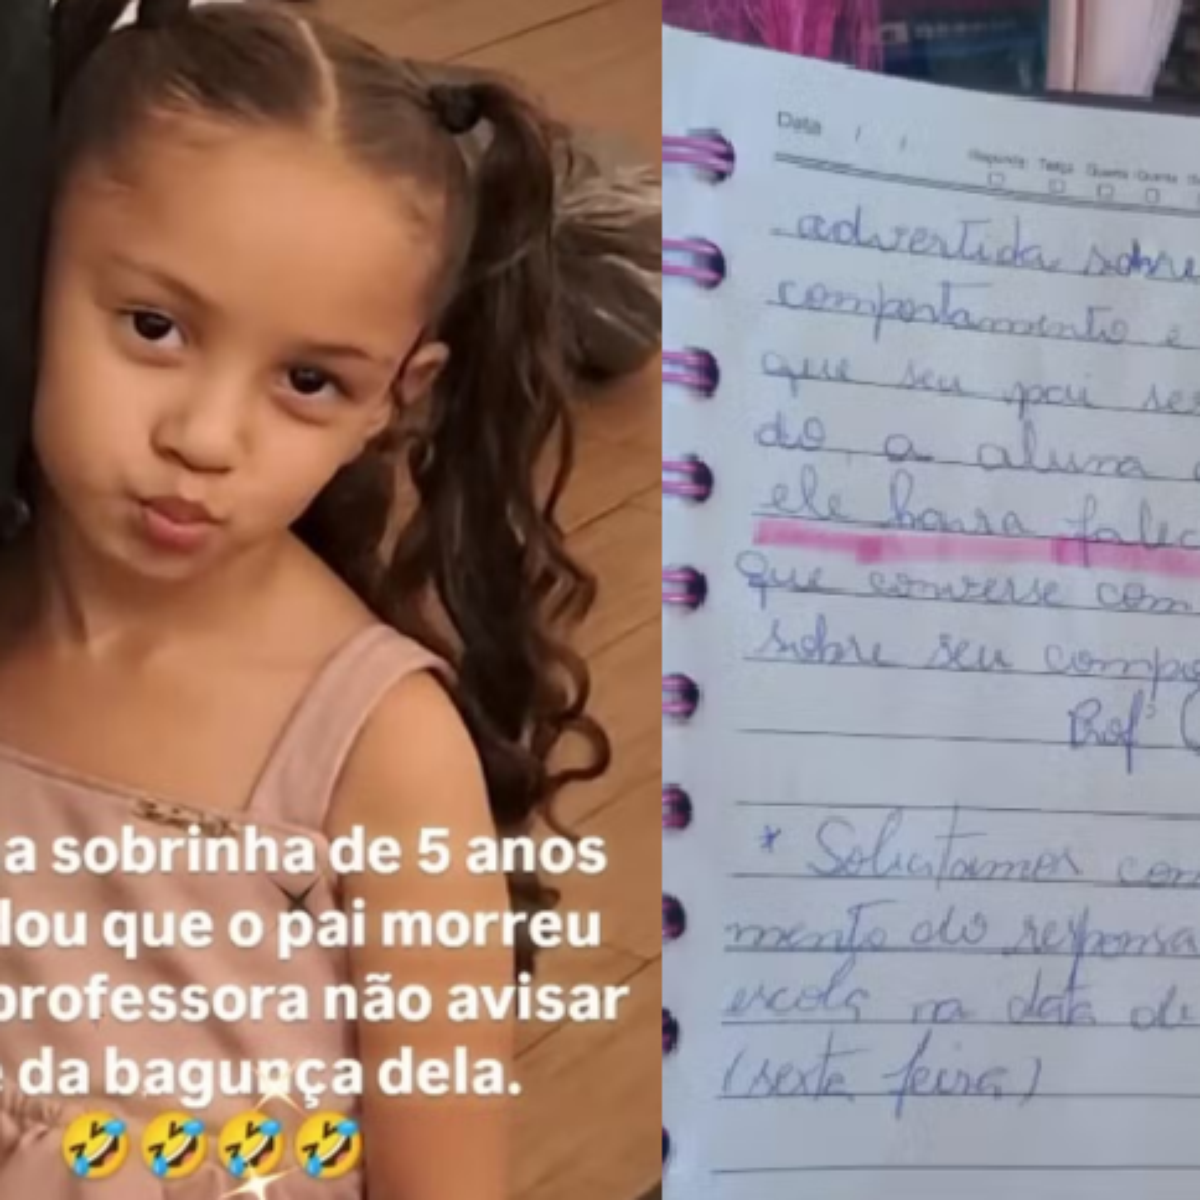 a sobrinha de 5 anos
lou que o pai morreu
professora não avisar
e da bagunça dela.
Data / /
Segunda Terça Quarta Quinta
advertida sobre
comportamento e
que seu pai se
do a aluna
ele havia falec
que converse com
sobre seu compo
Profª
* Solicitamos com
mento do responsa
escola na data d
(sexta feira)